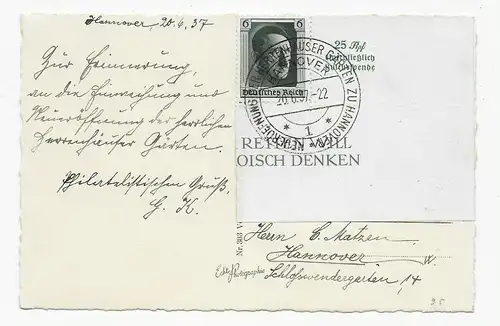 Hannover, 20.6.37
Zur Erinnerung,
an die Einweihung und
Neueröffnung der herrlichen
Herrenhäuser Gärten.
Philatelistischen Gruß,
G. K.
6 6
Deutsches Reich
25 Rpf
einschließlich
Kulturspende
HERRENHÄUSER GÄRTEN ZU HANNOVER
HANNOVER
20.6.37.-22
* 1 *
RETTEN WILL
OISCH DENKEN
Nr. 303
Echte Photographie
Herrn C. Matzen.
Hannover W.
Schloßwendergarten, 14